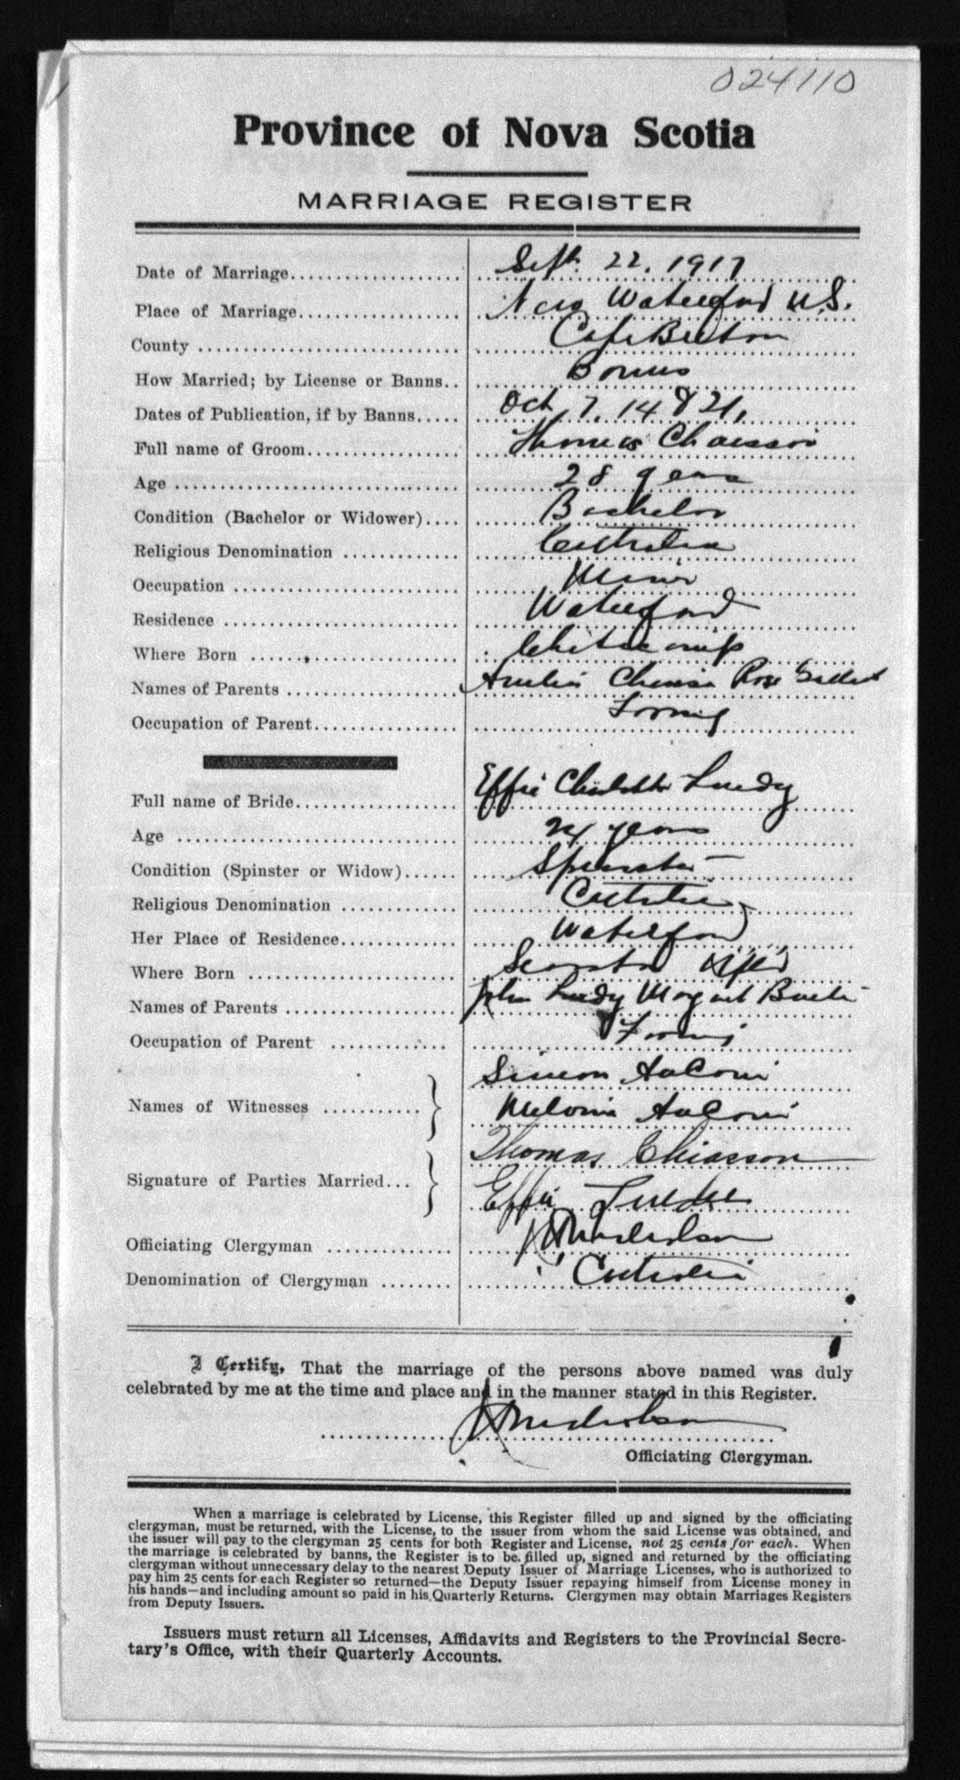 024110
Province of Nova Scotia
MARRIAGE REGISTER
Date of Marriage Sept 22, 1917
Place of Marriage New Waterford N.S.
County Cape Breton
How Married; by License or Banns Banns
Dates of Publication, if by Banns Oct 7, 14 & 21,
Full name of Groom Thomas Chiasson
Age 28 years
Condition (Bachelor or Widower) Bachelor
Religious Denomination Catholic
Occupation Miner
Residence Waterford
Where Born Cheticamp
Names of Parents Chiasson Rose
Occupation of Parent Farming
Full name of Bride Effie Charlotte
Age 24 years
Condition (Spinster or Widow) Spinster
Religious Denomination Catholic
Her Place of Residence Waterford
Where Born
Names of Parents John Margaret
Occupation of Parent
Simon AuCoin
Names of Witnesses
AuCoin
Thomas Chiasson
Signature of Parties Married
Effie
Officiating Clergyman Nicholson
Denomination of Clergyman Catholic
I Certify, That the marriage of the persons above named was duly
celebrated by me at the time and place and in the manner stated in this Register.
Nicholson
Officiating Clergyman.
When a marriage is celebrated by License, this Register filled up and signed by the officiating
clergyman, must be returned, with the License, to the issuer from whom the said License was obtained, and
the issuer will pay to the clergyman 25 cents for both Register and License, not 25 cents for each. When
the marriage is celebrated by banns, the Register is to be filled up, signed and returned by the officiating
clergyman without unnecessary delay to the nearest Deputy Issuer of Marriage Licenses, who is authorized to
pay him 25 cents for each Register so returned—the Deputy Issuer repaying himself from License money in
his hands—and including amount so paid in his Quarterly Returns. Clergymen may obtain Marriages Registers
from Deputy Issuers.
Issuers must return all Licenses, Affidavits and Registers to the Provincial Secre-
tary's Office, with their Quarterly Accounts.